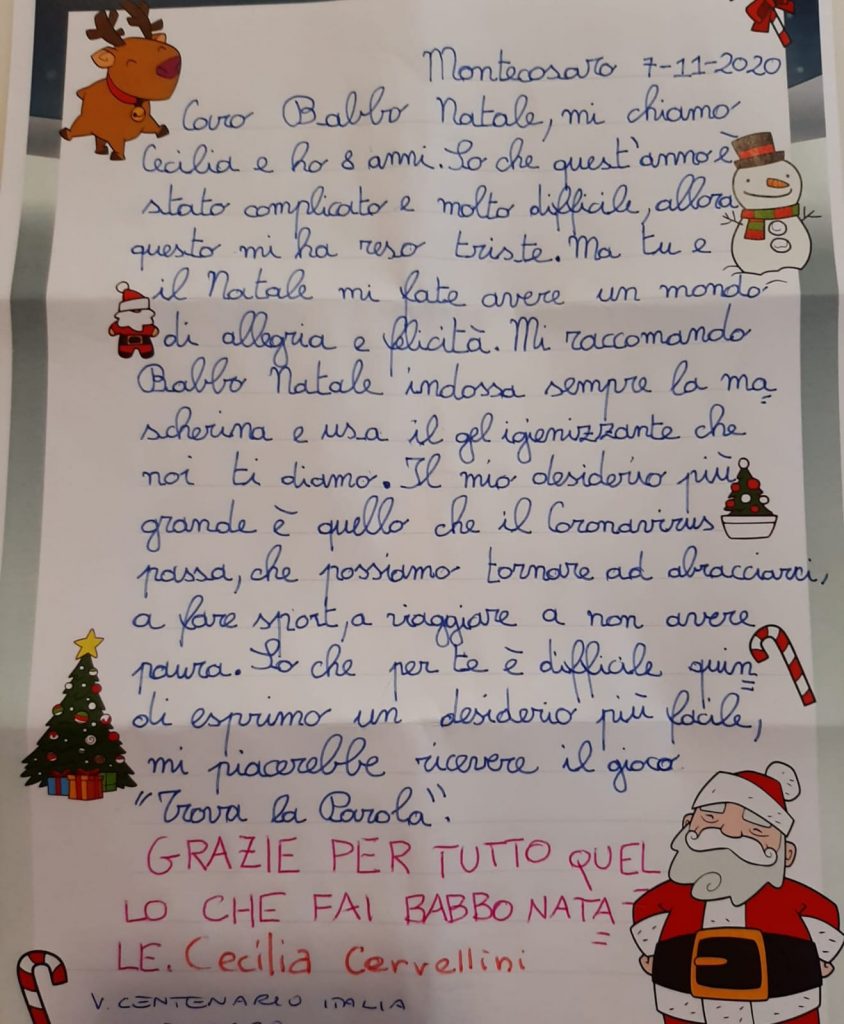 Montecosaro 7-11-2020
Caro Babbo Natale, mi chiamo
Cecilia e ho 8 anni. So che quest'anno è
stato complicato e molto difficile, allora
questo mi ha reso triste. Ma tu e
il Natale mi fate avere un mondo
di allegria e felicità. Mi raccomando
Babbo Natale indossa sempre la ma
scherina e usa il gel igienizzante che
noi ti diamo. Il mio desiderio più
grande è quello che il Coronavirus
passa, che possiamo tornare ad abracciarci,
a fare sport, a viaggiare a non avere
paura. So che per te è difficile quin
di esprimo un desiderio più facile,
mi piacerebbe ricevere il gioco
"Trova la Parola".
GRAZIE PER TUTTO QUEL
LO CHE FAI BABBO NATA
LE. Cecilia Cervellini
V. CENTENARIO ITALIA